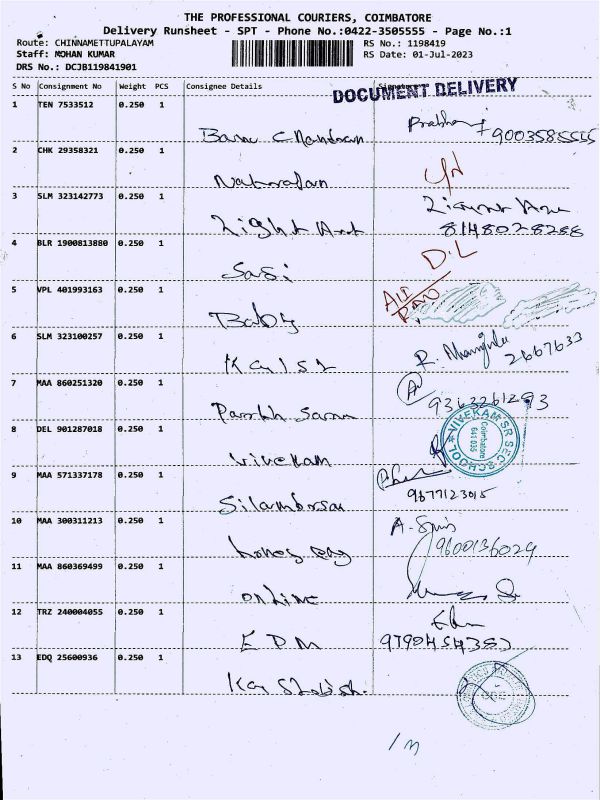 THE PROFESSIONAL COURIERS, COIMBATORE
Delivery Runsheet - SPT - Phone No.:0422-3505555 - Page No.:1
Route: CHINNAMETTUPALAYAM RS No.: 1198419
Staff: MOHAN KUMAR RS Date: 01-Jul-2023
DRS No.: DCJB119841901
S No Consignment No Weight PCS Consignee Details Signature
DOCUMENT DELIVERY
1 TEN 7533512 0.250 1
9003585555
2 CHK 29358321 0.250 1
3 SLM 323142773 0.250 1
Light
8148028288
4 BLR 1900813880 0.250 1
Sasi D.L
5 VPL 401993163 0.250 1
Baby
6 SLM 323100257 0.250 1
R. 2667633
7 MAA 860251320 0.250 1
9363261293
8 DEL 901287018 0.250 1
Vivekam
VIVEKAM SR SEC SCHOOL
Coimbatore
641 035
9 MAA 571337178 0.250 1
Silambarsan 9677123015
10 MAA 300311213 0.250 1
9600136029
11 MAA 860369499 0.250 1
online
12 TRZ 240004055 0.250 1
EDM 9790454383
13 EDQ 25600936 0.250 1